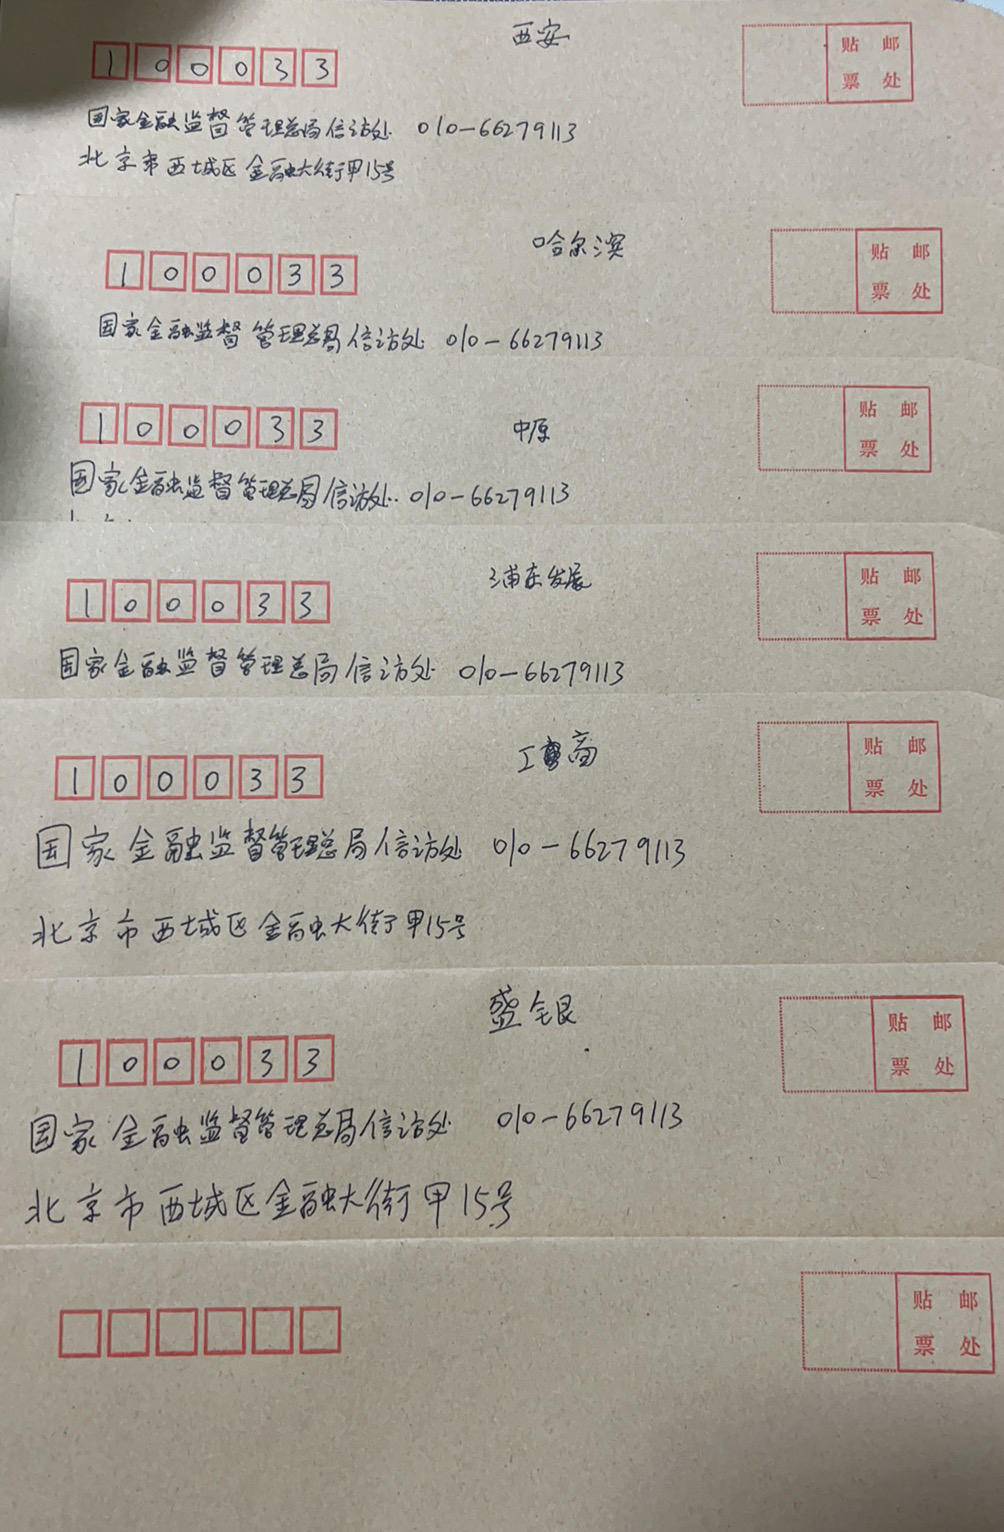 西安
贴 邮
票 处
1 0 0 0 3 3
国家金融监督管理总局信访处 010-66279113
北京市西城区金融大街甲15号
哈尔滨
贴 邮
票 处
1 0 0 0 3 3
国家金融监督管理总局信访处 010-66279113
贴 邮
票 处
1 0 0 0 3 3
中原
国家金融监督管理总局信访处 010-66279113
浦东发展
贴 邮
票 处
1 0 0 0 3 3
国家金融监督管理总局信访处 010-66279113
贴 邮
票 处
工商
1 0 0 0 3 3
国家金融监督管理总局信访处 010-66279113
北京市西城区金融大街甲15号
盛银
贴 邮
票 处
1 0 0 0 3 3
国家金融监督管理总局信访处 010-66279113
北京市西城区金融大街甲15号
贴 邮
票 处